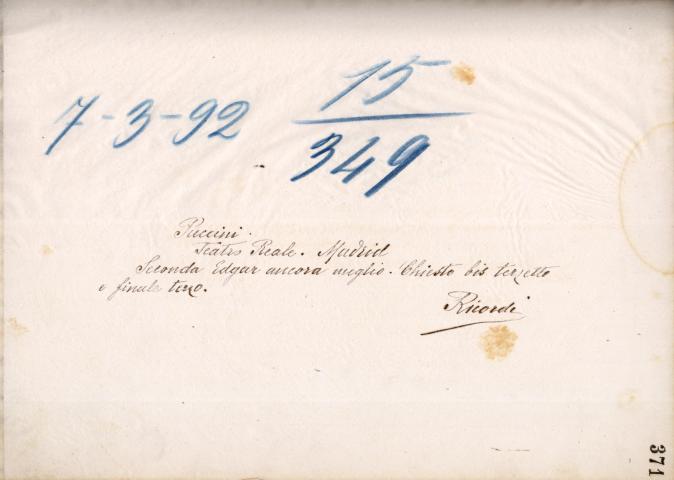 7-3-92 15
349
Puccini.
Teatro Reale. Madrid
Seconda Edgar ancora meglio. Chiesto bis terzetto
e finale terzo.
Ricordi
371